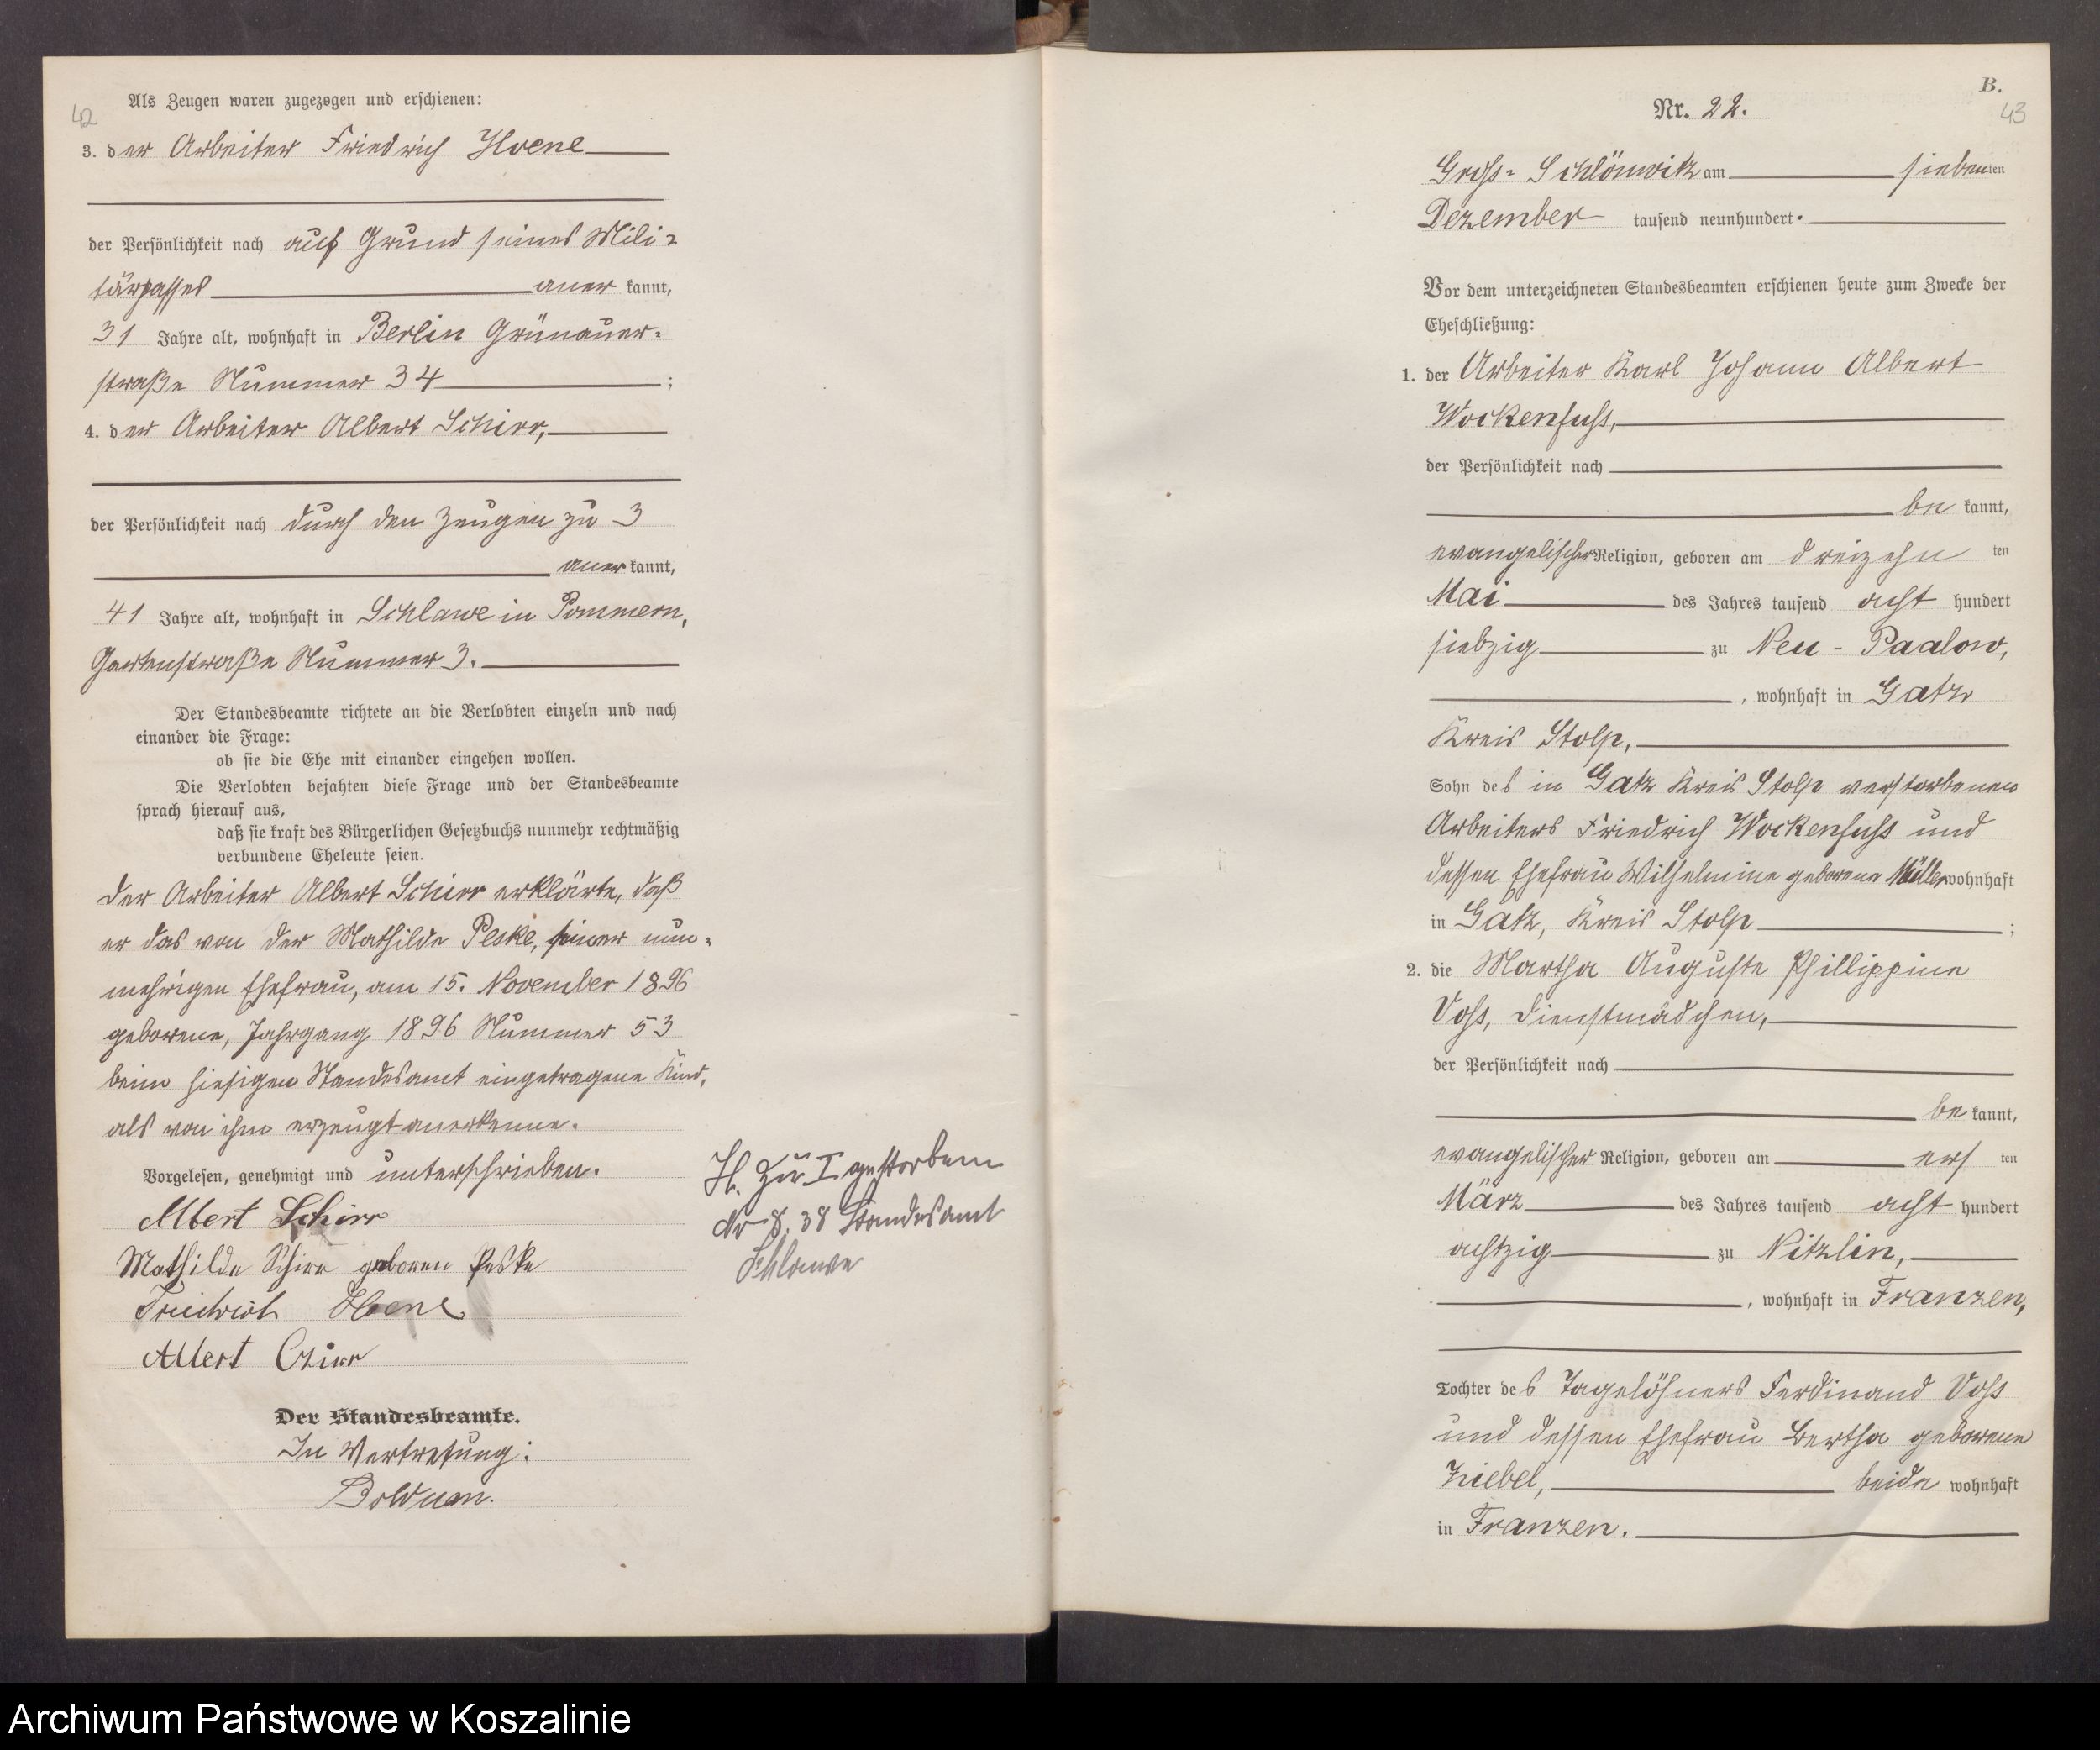 42
Als Zeugen waren zugezogen und erschienen:
3. der Arbeiter Friedrich Hoene
der Persönlichkeit nach auf Grund seines Mili=
tärpasses anerkannt,
31 Jahre alt, wohnhaft in Berlin Grünauer=
straße Nummer 34 ;
4. der Arbeiter Albert Schirr,
der Persönlichkeit nach durch den Zeugen zu 3
anerkannt,
41 Jahre alt, wohnhaft in Schlawe in Pommern,
Gartenstraße Nummer 3.
Der Standesbeamte richtete an die Verlobten einzeln und nach
einander die Frage:
ob sie die Ehe mit einander eingehen wollen.
Die Verlobten bejahten diese Frage und der Standesbeamte
sprach hierauf aus,
daß sie kraft des Bürgerlichen Gesetzbuchs nunmehr rechtmäßig
verbundene Eheleute seien.
Der Arbeiter Albert Schirr erklärte, daß
er das von der Mathilde Peske, seiner nun=
mehrigen Ehefrau, am 15. November 1896
geborene, Jahrgang 1896 Nummer 53
beim hiesigen Standesamt eingetragene Kind,
als von ihm erzeugt anerkenne.
Vorgelesen, genehmigt und unterschrieben.
Albert Schirr
Mathilde Schirr geboren Peske
Friedrich Hoene
Albert Czirr
Der Standesbeamte.
In Vertretung:
Bolduan.
H. zu I gestorben
Nr 8. 38 Standesamt
Schlawe
B.
43
Nr. 22.
Gross=Schlönwitz am siebenten
Dezember tausend neunhundert
Vor dem unterzeichneten Standesbeamten erschienen heute zum Zwecke der
Eheschließung:
1. der Arbeiter Karl Johann Albert
Wockenfuss,
der Persönlichkeit nach
bekannt,
evangelischer Religion, geboren am dreizehnten
Mai des Jahres tausend achthundert
siebzig zu Neu-Paalow,
, wohnhaft in Gatz
Kreis Stolp,
Sohn des in Gatz Kreis Stolp verstorbenen
Arbeiters Friedrich Wockenfuss und
dessen Ehefrau Wilhelmine geborene Müller wohnhaft
in Gatz, Kreis Stolp ;
2. die Martha Auguste Phillippine
Voss, Dienstmädchen,
der Persönlichkeit nach
bekannt,
evangelischer Religion, geboren am ersten
März des Jahres tausend achthundert
achtzig zu Nitzlin,
, wohnhaft in Franzen,
Tochter des Tagelöhners Ferdinand Voss
und dessen Ehefrau Bertha geborene
Ziebel, beide wohnhaft
in Franzen.
Archiwum Państwowe w Koszalinie